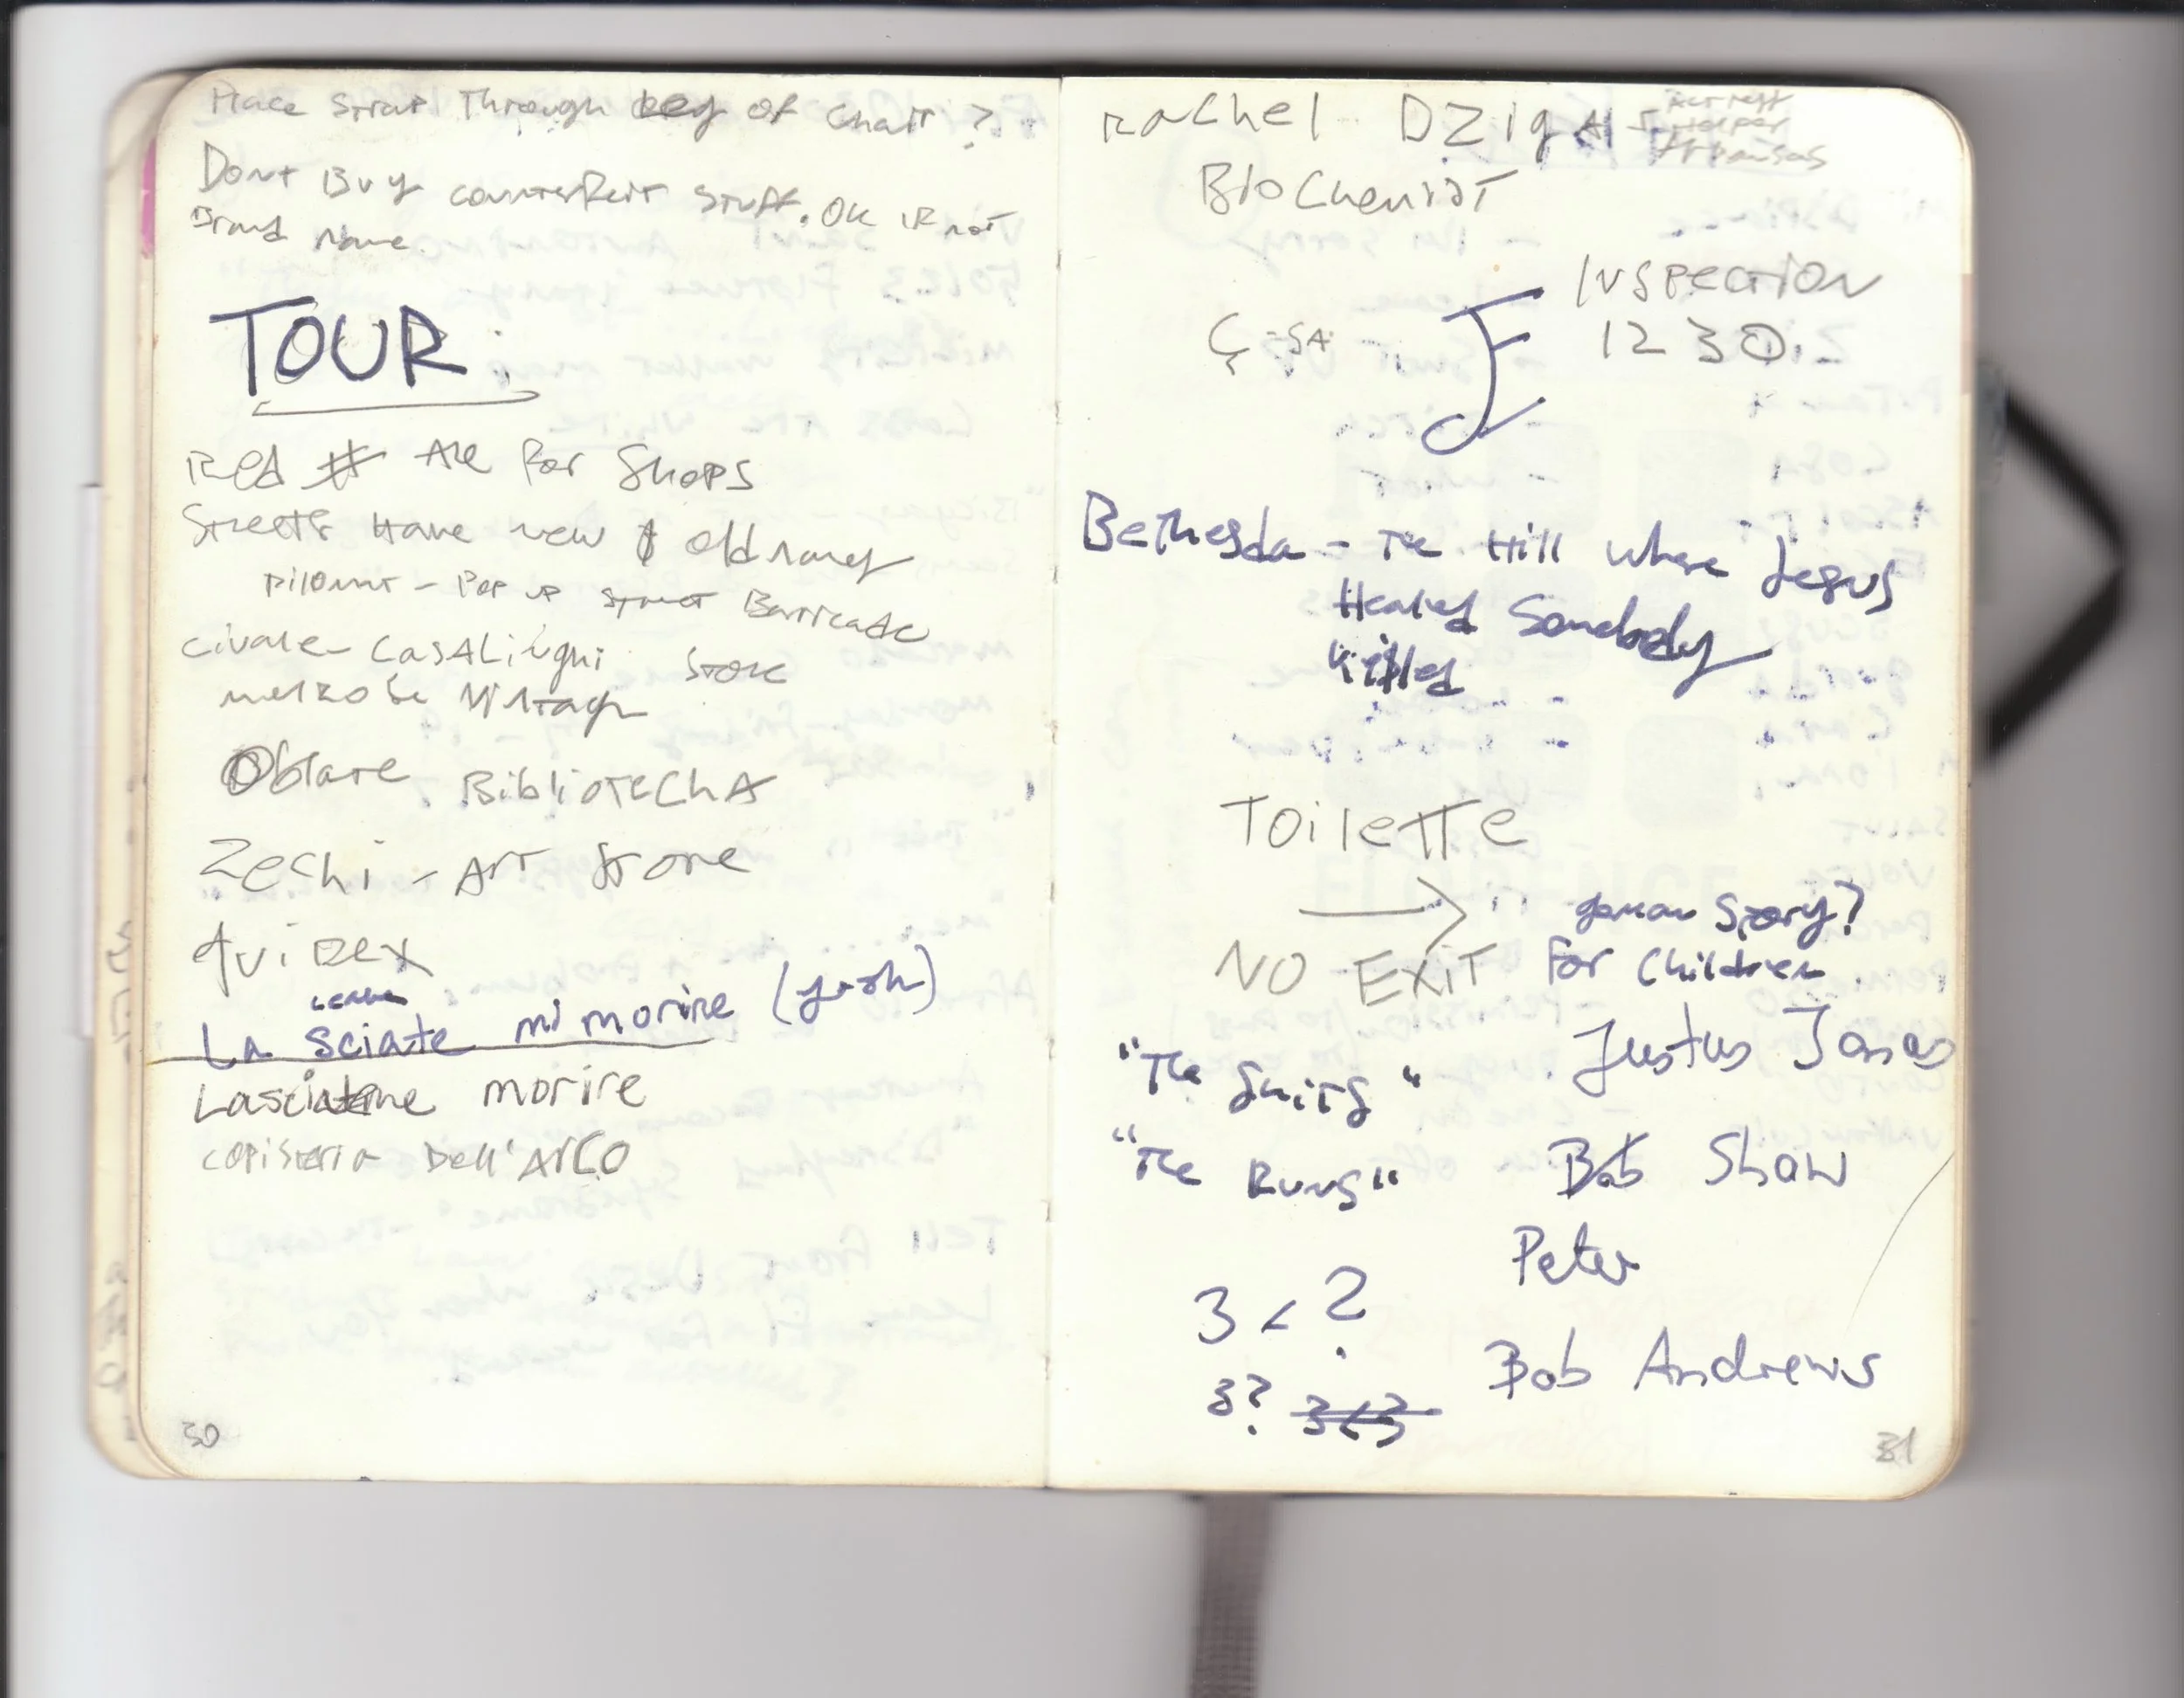 Place Strap Through Leg of Chair?
Dont Buy counterfeit stuff. OK if not
Brand Name.
TOUR
Red # Are for Shops
Streets Have new & old names
Pilomat - Pop up street Barricade
civale - CasALinghi Store
melrose Vintage
Oblate BibliotechA
Zechi - Art Store
Avirex
Leave
La sciate mi morire (Josh)
Lasciateme morire
copisteria Dell'ArCO
30
Rachel Dzigan -
Arkansas
BioChemist
INSPECTION
1230
Bethesda - The Hill where Jesus
Healed Somebody
Killed
Toilette
→
NO EXIT
german Story?
For Children
Justus Jonas
"The Shits"
"The Runs"
Bob Shaw
Peter
3 < ?
Bob Andrews
3? 3<3
31